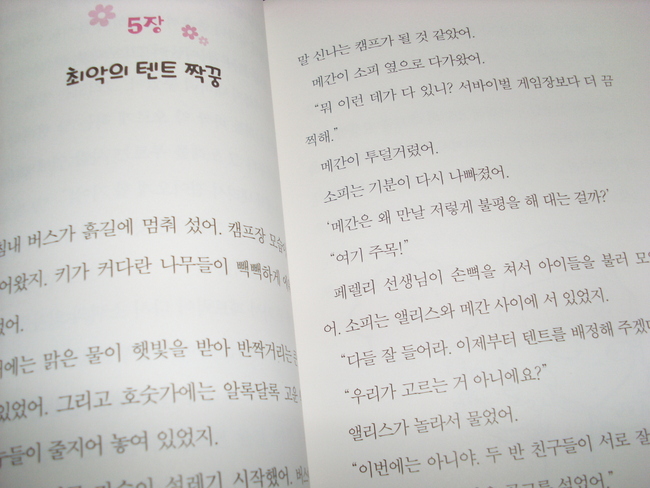 5장
최악의 텐트 짝꿍
버스가 흙길에 멈춰 섰어. 캠프장
키가 커다란 나무들이 빽빽하게
맑은 물이 햇빛을 받아 반짝거리는
있었어. 그리고 호숫가에는 알록달록 고운
줄지어 놓여 있었지.
설레기 시작했어.
말 신나는 캠프가 될 것 같았어.
메간이 소피 옆으로 다가왔어.
“뭐 이런 데가 다 있니? 서바이벌 게임장보다 더 끔
찍해.”
메간이 투덜거렸어.
소피는 기분이 다시 나빠졌어.
‘메간은 왜 만날 저렇게 불평을 해 대는 걸까?’
“여기 주목!”
페렐리 선생님이 손뼉을 쳐서 아이들을 불러
어. 소피는 앨리스와 메간 사이에 서 있었지.
“다들 잘 들어라. 이제부터 텐트를 배정해 주겠다
“우리가 고르는 거 아니에요?”
앨리스가 놀라서 물었어.
“이번에는 아니야. 두 반 친구들이 서로 잘